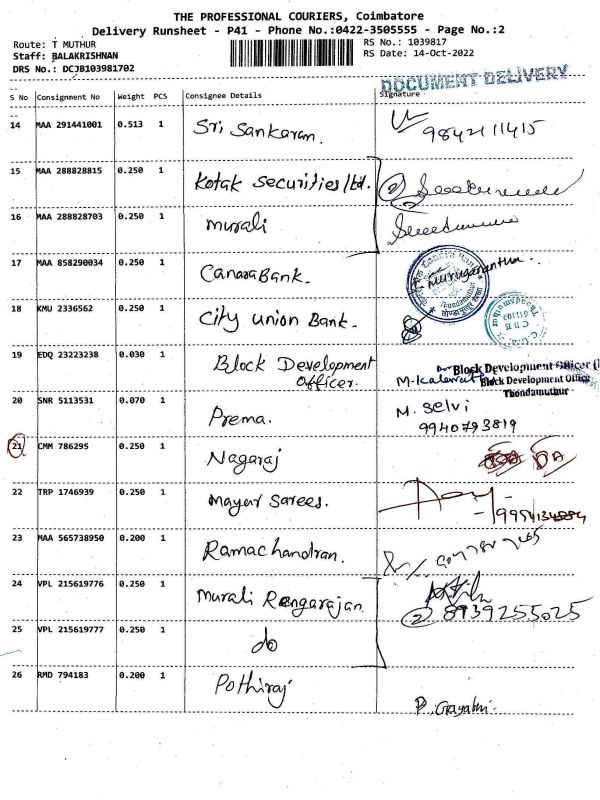 THE PROFESSIONAL COURIERS, Coimbatore
Delivery Runsheet - P41 - Phone No.:0422-3505555 - Page No.:2
Route: T MUTHUR RS No.: 1039817
Staff: BALAKRISHNAN RS Date: 14-Oct-2022
DRS No.: DCJB103981702
DOCUMENT DELIVERY
S No Consignment No Weight PCS Consignee Details Signature
14 MAA 291441001 0.513 1 Sri Sankaram. 9842111415
15 MAA 288828815 0.250 1 Kotak Securities Ltd. 2
16 MAA 288828703 0.250 1 murali
17 MAA 858290034 0.250 1 Canara Bank.
Thondamuthur
18 KMU 2336562 0.250 1 City Union Bank.
19 EDQ 23223238 0.030 1 Block Development Officer.
Block Development Officer
M. Block Development Office
Thondamuthur
20 SNR 5113531 0.070 1 Prema. M. Selvi
9940793819
21 CMM 786295 0.250 1 Nagaraj DA
22 TRP 1746939 0.250 1 Mayuri Sarees.
23 MAA 565738950 0.200 1 Ramachandran.
24 VPL 215619776 0.250 1 Murali Rengarajan
2 8939255025
25 VPL 215619777 0.250 1 do
26 RMD 794183 0.200 1 Pothiraj
P. Gayathri.